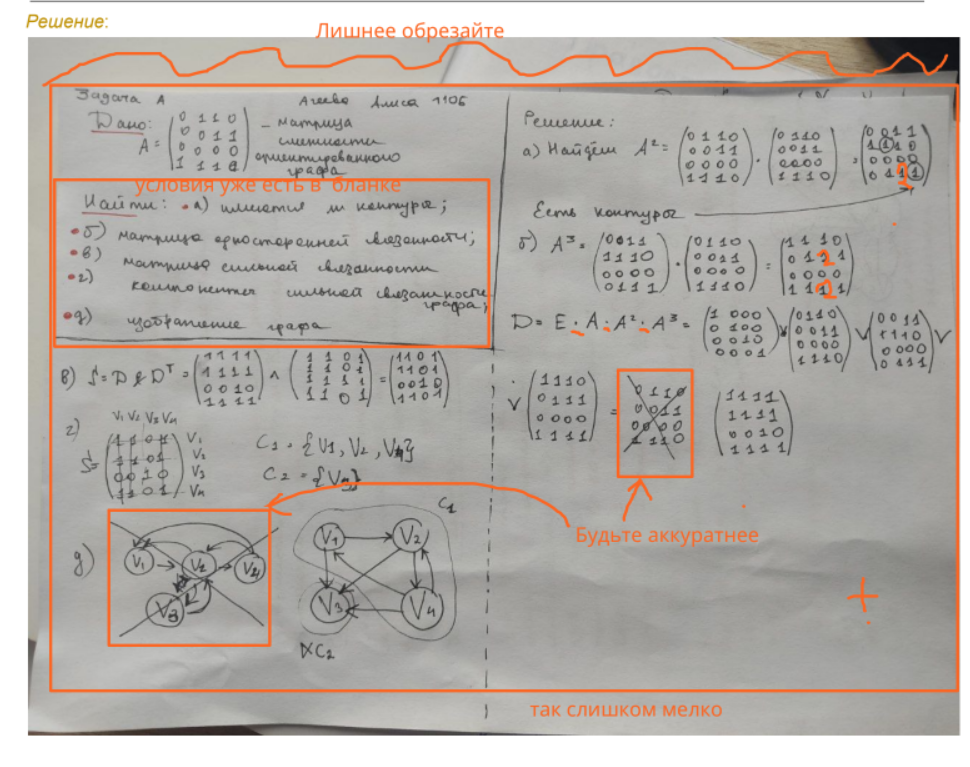 Решение:
Лишнее обрезайте
Задача А Агеева Алиса 1106
Дано:
A = (0 1 1 0
0 0 1 1
0 0 0 0
1 1 1 0) – матрица
смежности
ориентированного
графа
условия уже есть в бланке
Найти: а) имеются ли контуры;
б) матрица односторонней связанности;
в) матрица сильной связанности
г) компоненты сильной связанности
графа;
д) изображение графа
в) S = D & Dᵀ = (1 1 1 1
1 1 1 1
0 0 1 0
1 1 1 1) ∧ (1 1 0 1
1 1 0 1
1 1 1 1
1 1 0 1) = (1 1 0 1
1 1 0 1
0 0 1 0
1 1 0 1)
г) V₁ V₂ V₃ V₄
S = (1 1 0 1) V₁
1 1 0 1 V₂
0 0 1 0 V₃
1 1 0 1 V₄
C₁ = {V₁, V₂, V₄}
C₂ = {V₃}
д) V₁ V₂ V₄
V₃
C₁
V₁ V₂
V₃ V₄
C₂
Решение:
а) Найдём A² = (0 1 1 0
0 0 1 1
0 0 0 0
1 1 1 0) · (0 1 1 0
0 0 1 1
0 0 0 0
1 1 1 0) = (0 0 1 1
1 1 1 0
0 0 0 0
0 1 2 1)
Есть контуры
б) A³ = (0 0 1 1
1 1 1 0
0 0 0 0
0 1 1 1) · (0 1 1 0
0 0 1 1
0 0 0 0
1 1 1 0) = (1 1 1 0
0 1 2 1
0 0 0 0
1 1 2 1)
D = E · A · A² · A³ = (1 0 0 0
0 1 0 0
0 0 1 0
0 0 0 1) ∨ (0 1 1 0
0 0 1 1
0 0 0 0
1 1 1 0) ∨ (0 0 1 1
1 1 1 0
0 0 0 0
0 1 1 1) ∨
∨ (1 1 1 0
0 1 1 1
0 0 0 0
1 1 1 1) = (0 1 1 0
0 0 1 1
0 0 0 0
1 1 1 0) (1 1 1 1
1 1 1 1
0 0 1 0
1 1 1 1)
Будьте аккуратнее
+
так слишком мелко